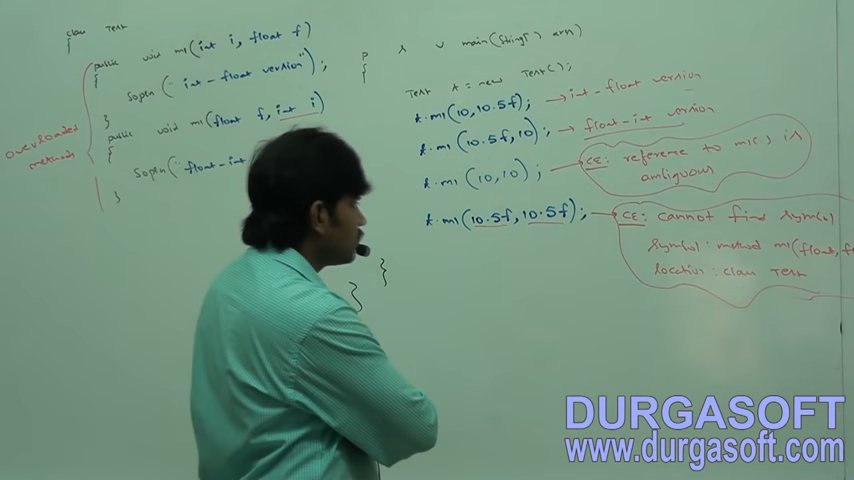 class Test
{
public void m1(int i, float f)
{
Sopln("int-float version");
}
public void m1(float f, int i)
{
Sopln("float-int
}
overloaded
methods
p s v main(String[] args)
{
Test t = new Test();
t.m1(10,10.5f); → int-float version
t.m1(10.5f,10); → float-int version
t.m1(10,10); → CE: reference to m1() is
ambiguous
t.m1(10.5f,10.5f); → CE: cannot find symbol
symbol: method m1(float, f
location: class Test
}
}
DURGASOFT
www.durgasoft.com